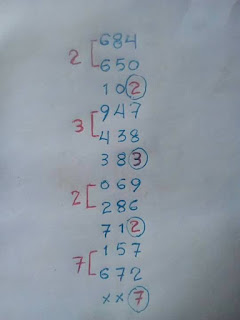 684
2 [
650
102
947
3 [
438
383
069
2 [
286
712
157
7 [
672
xx7